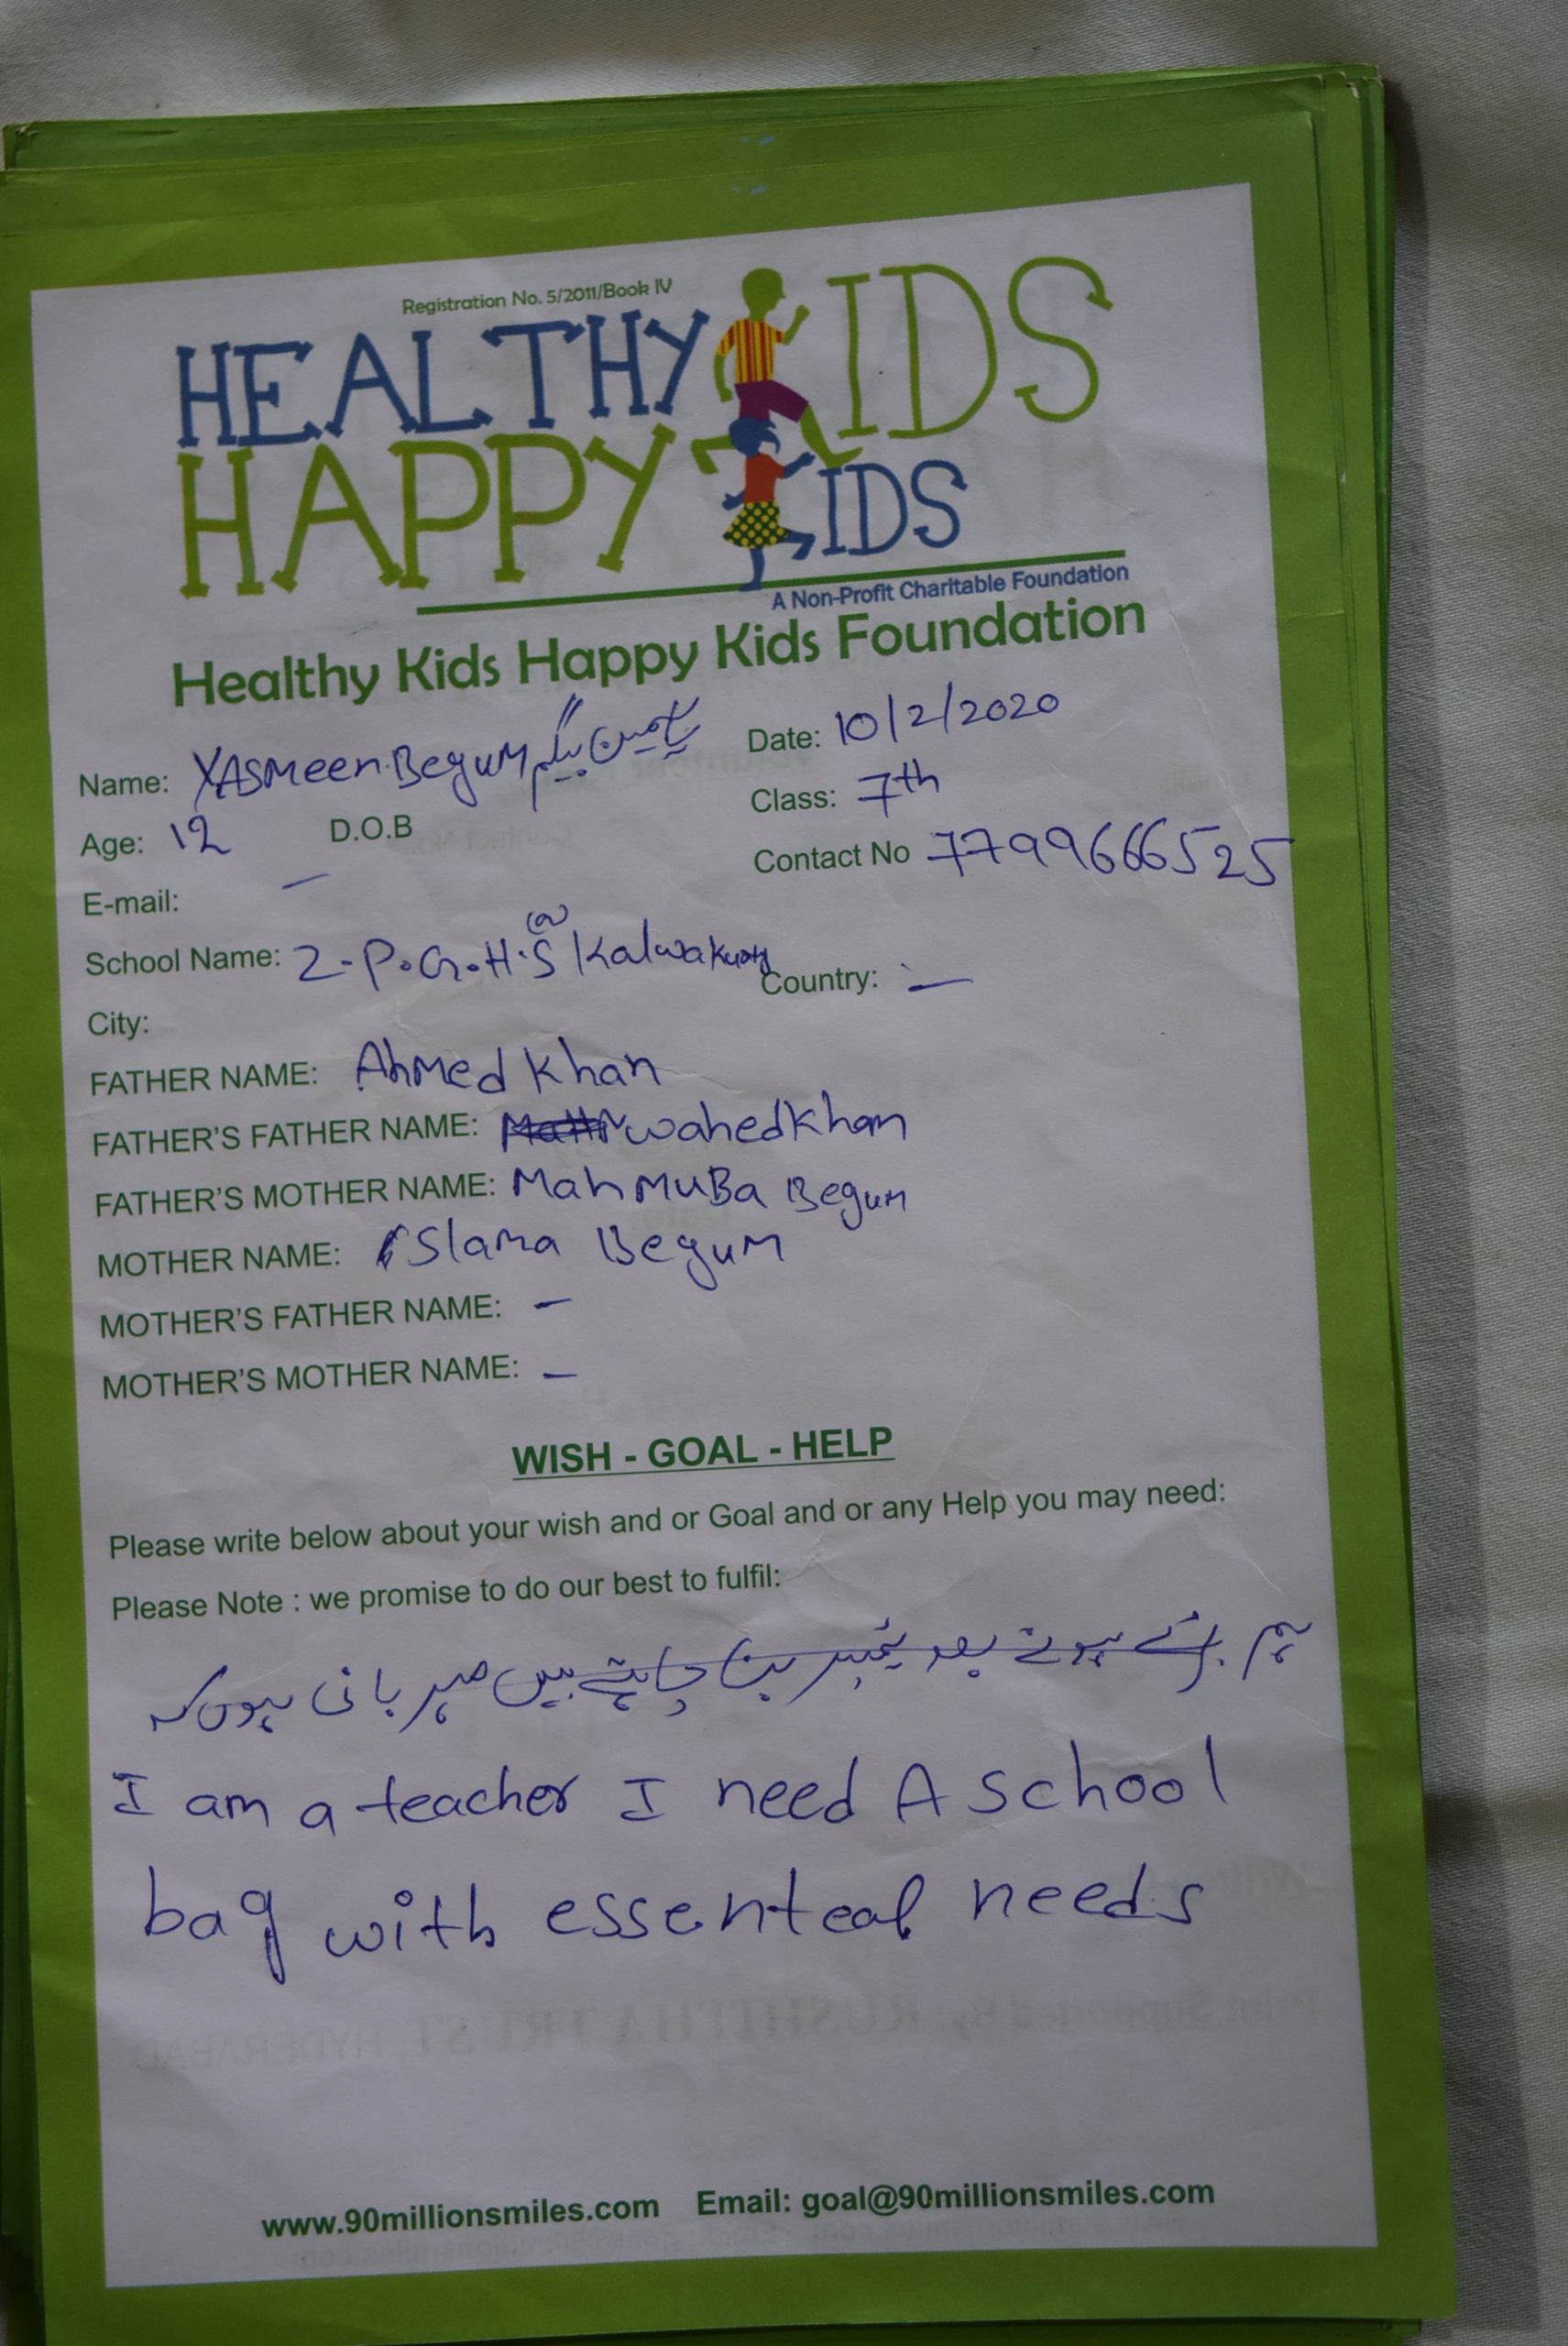 Registration No. 5/2011/Book IV
HEALTHY KIDS
HAPPY KIDS
A Non-Profit Charitable Foundation
Healthy Kids Happy Kids Foundation
Name: YASMeen Begum یاسمین بیگم Date: 10/2/2020
Age: 12 D.O.B Class: 7th
E-mail: — Contact No 7799666525
School Name: Z-P.G.H.S (@) Kalwakurty Country: —
City:
FATHER NAME: AhMed Khan
FATHER'S FATHER NAME: wahedkhan
FATHER'S MOTHER NAME: MahMuBa Begum
MOTHER NAME: Islama Begum
MOTHER'S FATHER NAME: —
MOTHER'S MOTHER NAME: —
WISH - GOAL - HELP
Please write below about your wish and or Goal and or any Help you may need:
Please Note : we promise to do our best to fulfil:
ہم بڑے ہونے بعد بننا چاہتے ہیں مہربانی ہوں کہ
I am a teacher I need A school
bag with essenteal needs
www.90millionsmiles.com Email: goal@90millionsmiles.com